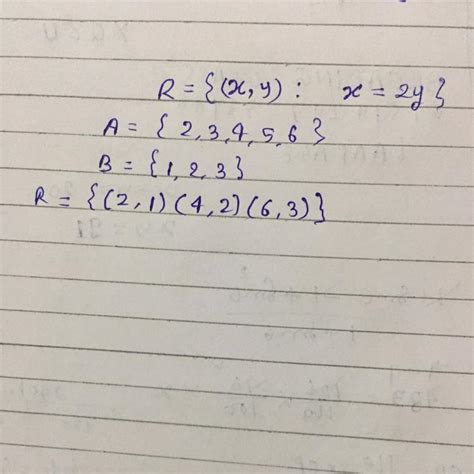 R = {(x, y) : x = 2y}
A = { 2, 3, 4, 5, 6 }
B = {1, 2, 3}
R = {(2, 1) (4, 2) (6, 3)}